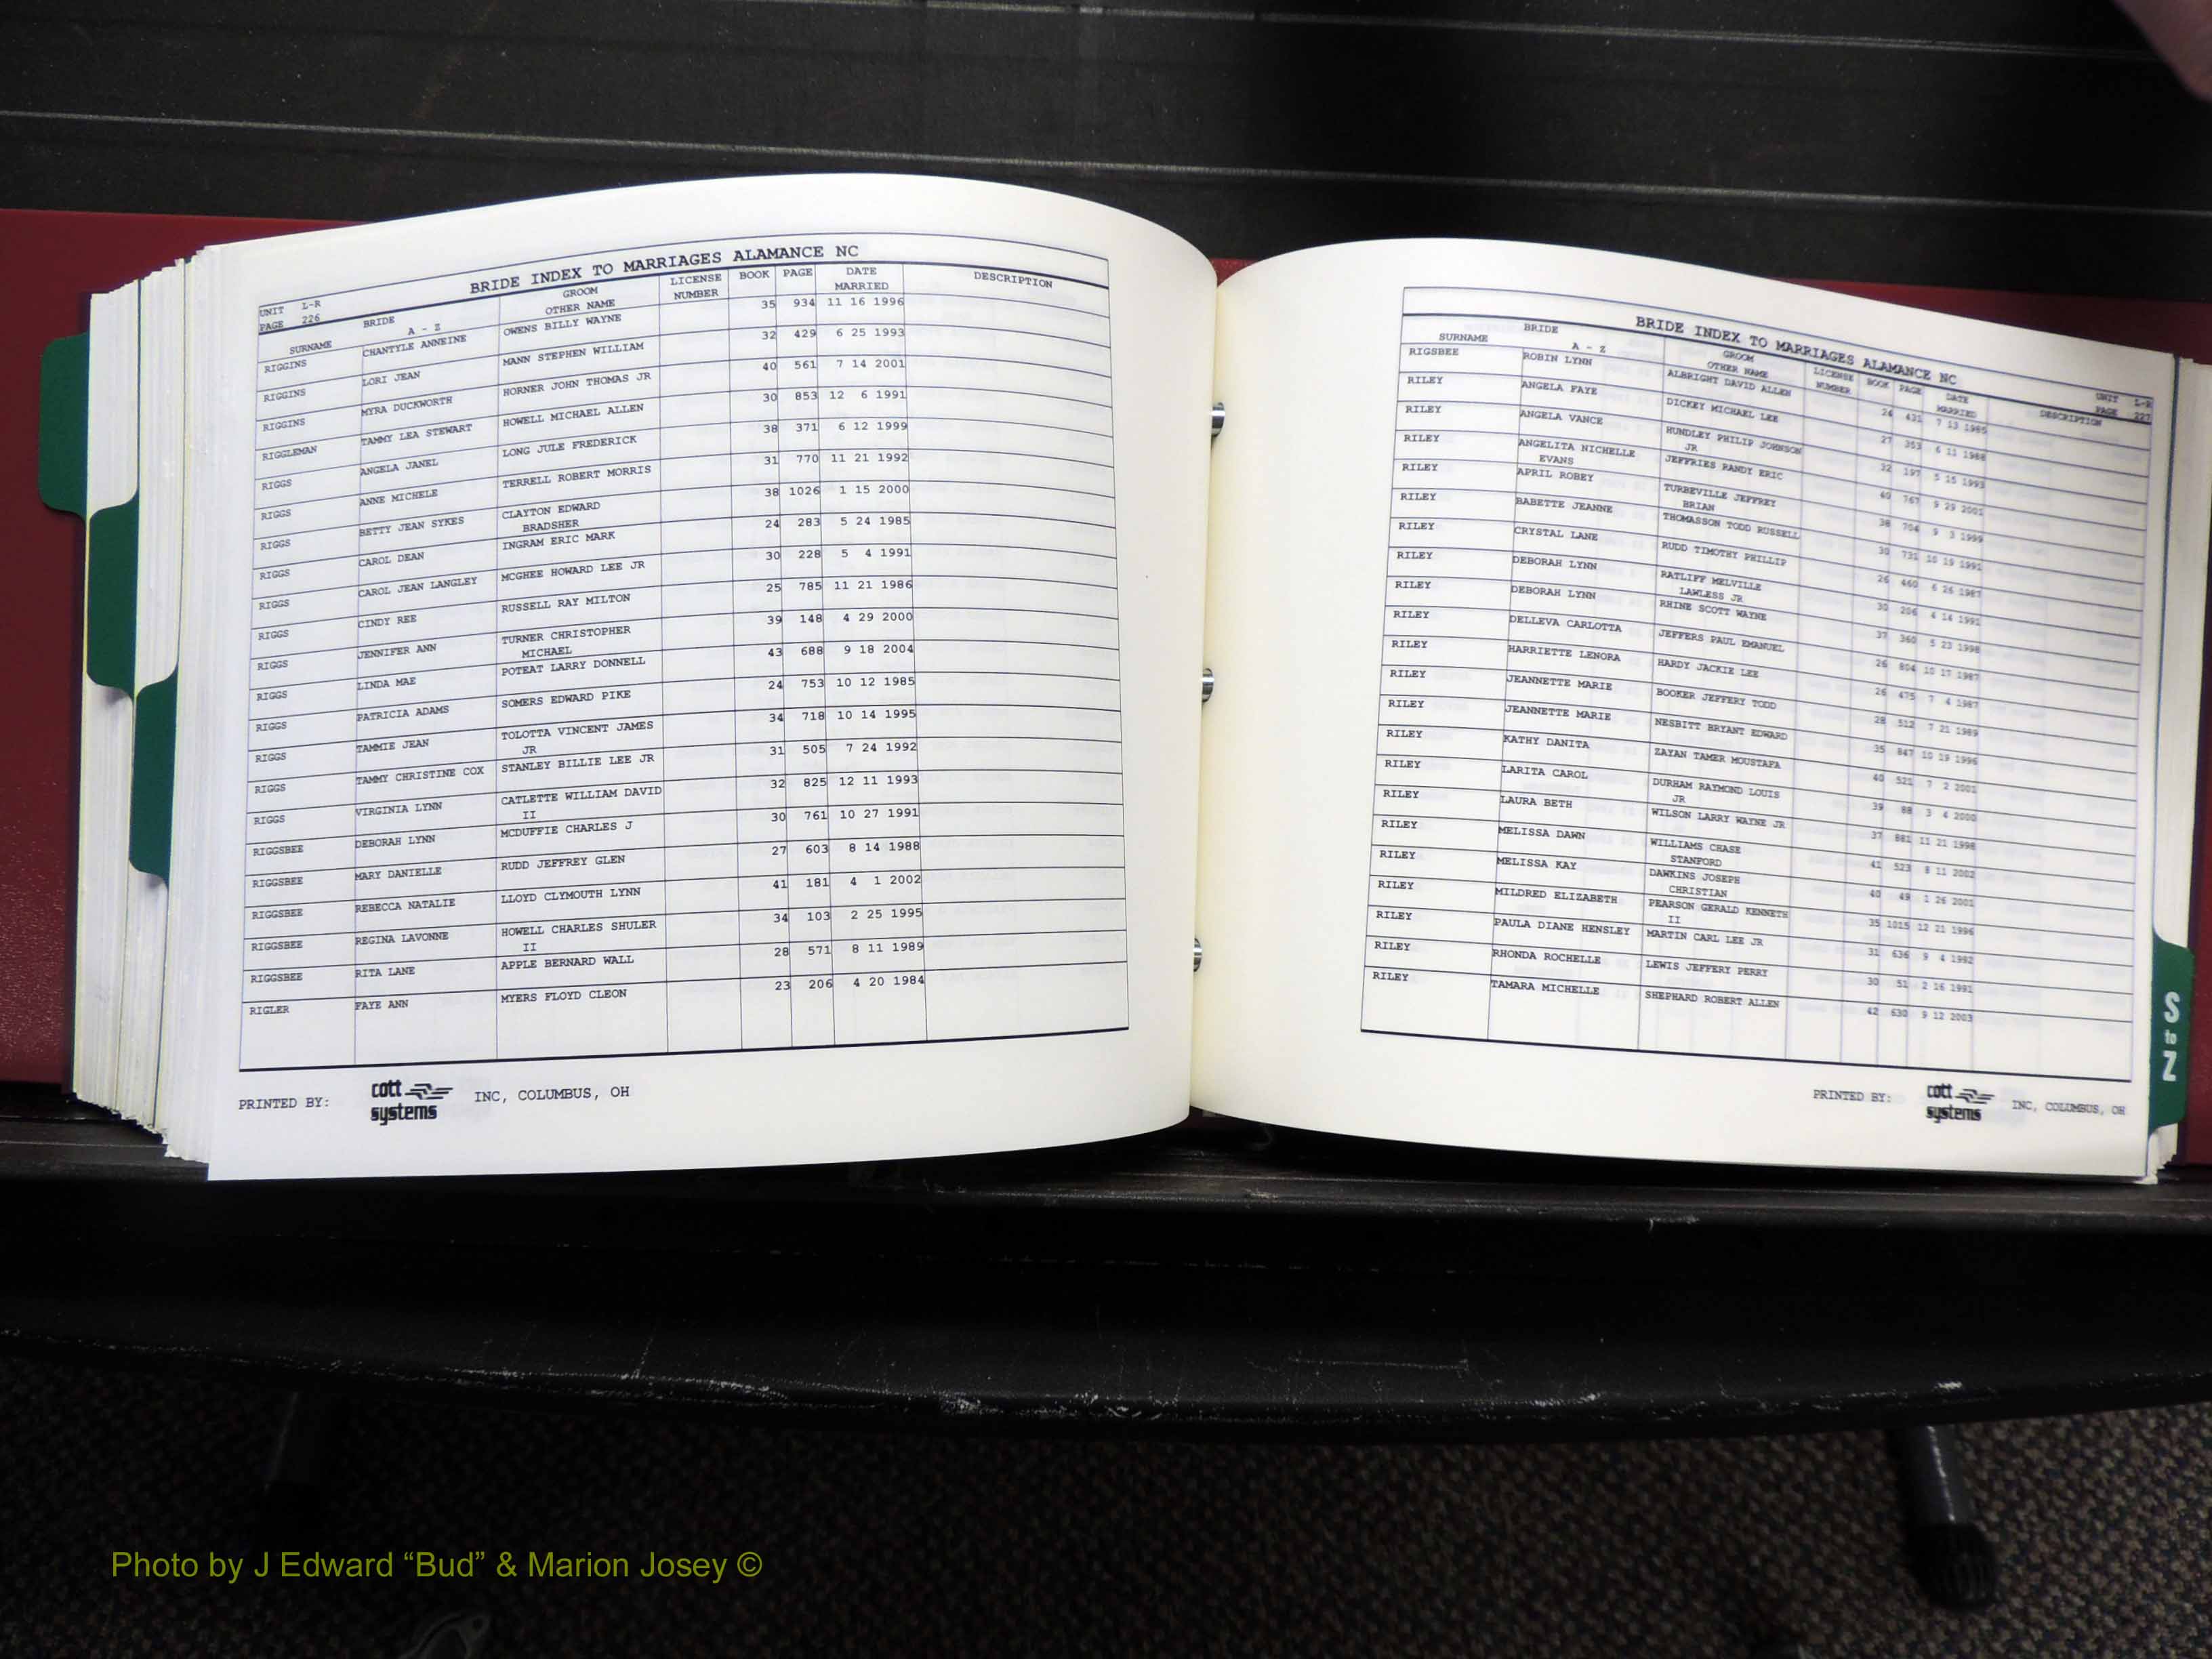 UNIT L-R
PAGE 226
BRIDE INDEX TO MARRIAGES ALAMANCE NC
BRIDE GROOM LICENSE BOOK PAGE DATE DESCRIPTION
SURNAME A - Z OTHER NAME NUMBER MARRIED
RIGGINS CHANTYLE ANNEINE OWENS BILLY WAYNE 35 934 11 16 1996
RIGGINS LORI JEAN MANN STEPHEN WILLIAM 32 429 6 25 1993
RIGGINS MYRA DUCKWORTH HORNER JOHN THOMAS JR 40 561 7 14 2001
RIGGLEMAN TAMMY LEA STEWART HOWELL MICHAEL ALLEN 30 853 12 6 1991
RIGGS ANGELA JANEL LONG JULE FREDERICK 38 371 6 12 1999
RIGGS ANNE MICHELE TERRELL ROBERT MORRIS 31 770 11 21 1992
RIGGS BETTY JEAN SYKES CLAYTON EDWARD 38 1026 1 15 2000
BRADSHER
RIGGS CAROL DEAN INGRAM ERIC MARK 24 283 5 24 1985
RIGGS CAROL JEAN LANGLEY MCGHEE HOWARD LEE JR 30 228 5 4 1991
RIGGS CINDY REE RUSSELL RAY MILTON 25 785 11 21 1986
RIGGS JENNIFER ANN TURNER CHRISTOPHER 39 148 4 29 2000
MICHAEL
RIGGS LINDA MAE POTEAT LARRY DONNELL 43 688 9 18 2004
RIGGS PATRICIA ADAMS SOMERS EDWARD PIKE 24 753 10 12 1985
RIGGS TAMMIE JEAN TOLOTTA VINCENT JAMES 34 718 10 14 1995
JR
RIGGS TAMMY CHRISTINE COX STANLEY BILLIE LEE JR 31 505 7 24 1992
RIGGS VIRGINIA LYNN CATLETTE WILLIAM DAVID 32 825 12 11 1993
II
RIGGSBEE DEBORAH LYNN MCDUFFIE CHARLES J 30 761 10 27 1991
RIGGSBEE MARY DANIELLE RUDD JEFFREY GLEN 27 603 8 14 1988
RIGGSBEE REBECCA NATALIE LLOYD CLYMOUTH LYNN 41 181 4 1 2002
RIGGSBEE REGINA LAVONNE HOWELL CHARLES SHULER 34 103 2 25 1995
II
RIGGSBEE RITA LANE APPLE BERNARD WALL 28 571 8 11 1989
RIGLER FAYE ANN MYERS FLOYD CLEON 23 206 4 20 1984
PRINTED BY: cott systems INC, COLUMBUS, OH
BRIDE INDEX TO MARRIAGES ALAMANCE NC
UNIT L-R
PAGE 227
BRIDE GROOM LICENSE BOOK PAGE DATE DESCRIPTION
SURNAME A - Z OTHER NAME NUMBER MARRIED
RIGSBEE ROBIN LYNN ALBRIGHT DAVID ALLEN 24 431 7 13 1985
RILEY ANGELA FAYE DICKEY MICHAEL LEE 27 353 6 11 1988
RILEY ANGELA VANCE HUNDLEY PHILIP JOHNSON 32 197 5 15 1993
JR
RILEY ANGELITA NICHELLE JEFFRIES RANDY ERIC 40 767 9 29 2001
EVANS
RILEY APRIL ROBEY TURBEVILLE JEFFREY 38 704 9 3 1999
BRIAN
RILEY BABETTE JEANNE THOMASSON TODD RUSSELL 30 731 10 19 1991
RILEY CRYSTAL LANE RUDD TIMOTHY PHILLIP 26 460 6 26 1987
RILEY DEBORAH LYNN RATLIFF MELVILLE 30 206 4 14 1991
LAWLESS JR
RILEY DEBORAH LYNN RHINE SCOTT WAYNE 37 360 5 23 1998
RILEY DELLEVA CARLOTTA JEFFERS PAUL EMANUEL 26 804 10 17 1987
RILEY HARRIETTE LENORA HARDY JACKIE LEE 26 475 7 4 1987
RILEY JEANNETTE MARIE BOOKER JEFFERY TODD 28 512 7 21 1989
RILEY JEANNETTE MARIE NESBITT BRYANT EDWARD 35 847 10 19 1996
RILEY KATHY DANITA ZAYAN TAMER MOUSTAFA 40 521 7 2 2001
RILEY LARITA CAROL DURHAM RAYMOND LOUIS 39 88 3 4 2000
JR
RILEY LAURA BETH WILSON LARRY WAYNE JR 37 881 11 21 1998
RILEY MELISSA DAWN WILLIAMS CHASE 41 523 8 11 2002
STANFORD
RILEY MELISSA KAY DAWKINS JOSEPH 40 49 1 26 2001
CHRISTIAN
RILEY MILDRED ELIZABETH PEARSON GERALD KENNETH 35 1015 12 21 1996
II
RILEY PAULA DIANE HENSLEY MARTIN CARL LEE JR 31 636 9 4 1992
RILEY RHONDA ROCHELLE LEWIS JEFFERY PERRY 30 51 2 16 1991
RILEY TAMARA MICHELLE SHEPHARD ROBERT ALLEN 42 630 9 12 2003
PRINTED BY: cott systems INC, COLUMBUS, OH
S to Z
Photo by J Edward “Bud” & Marion Josey ©